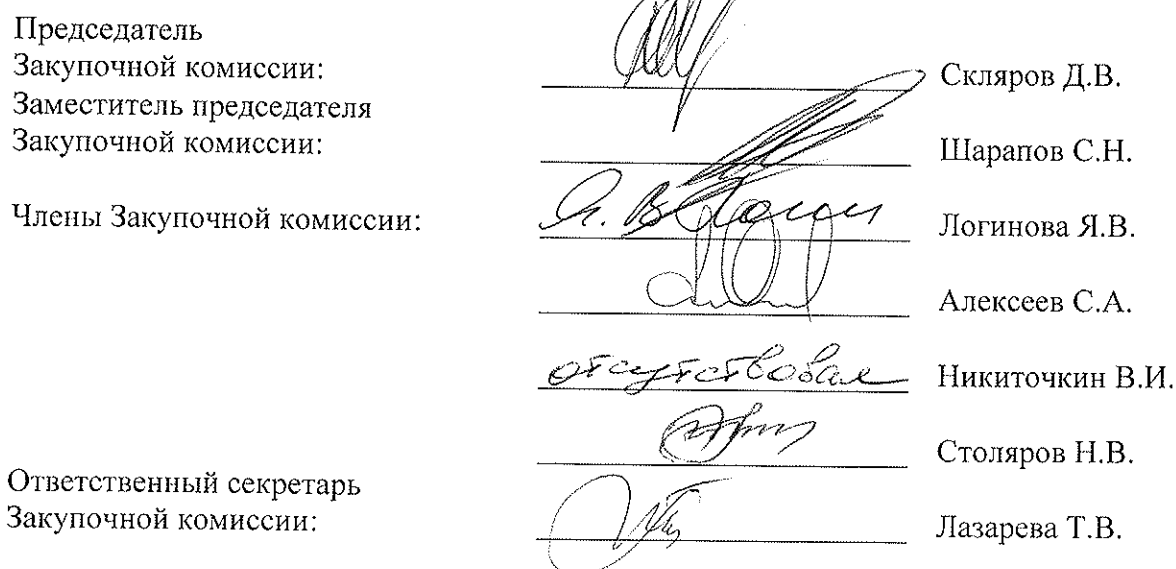 Председатель
Закупочной комиссии: Скляров Д.В.
Заместитель председателя
Закупочной комиссии: Шарапов С.Н.
Члены Закупочной комиссии: Логинова Я.В.
Алексеев С.А.
отсутствовал Никиточкин В.И.
Столяров Н.В.
Ответственный секретарь
Закупочной комиссии: Лазарева Т.В.